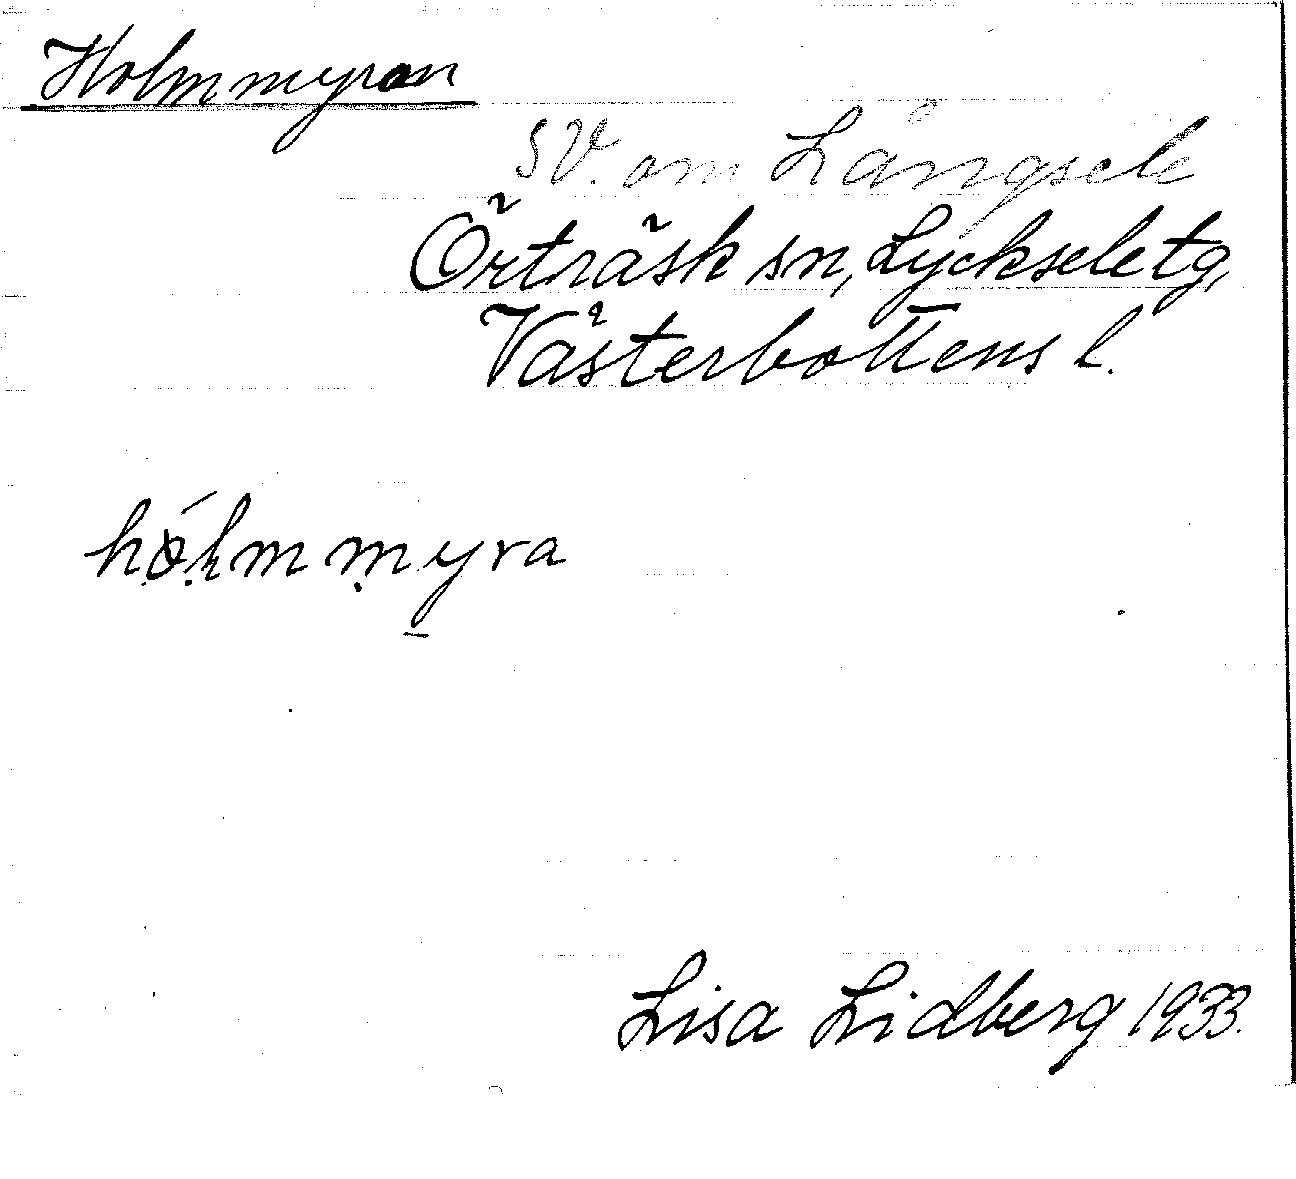 Holmmyran
SV. om Långsele
Örträsk sn, Lycksele tg,
Västerbottens l.
hólmmyra
Lisa Lidberg 1933.